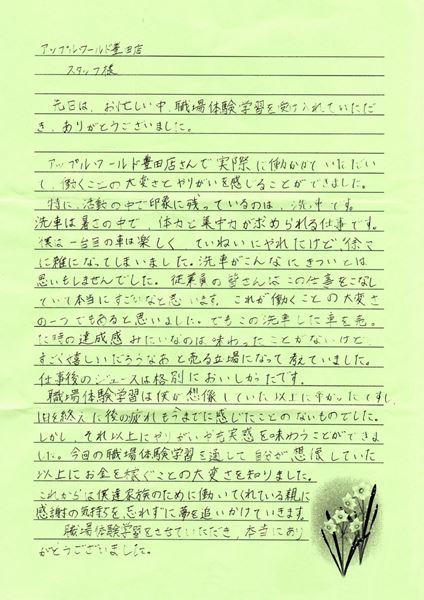 アップルワールド豊田店
スタッフ様
先日は、お忙しい中、職場体験学習を受けられていただ
き、ありがとうございました。
アップルワールド豊田店さんで実際に働かせていただい
て、働くことの大変さとやりがいを感じることができました。
特に、活動の中で印象に残っているのは、洗車です。
洗車は暑さの中で、体力と集中力が求められる仕事です。
僕は一台目の車は楽しく、ていねいにやれたけど、徐々
に雑になってしまいました。洗車がこんなにきついとは
思いもしませんでした。従業員の皆さんはこの仕事をこなし
ていて本当にすごいなと思います。これが働くことの大変さ
の一つでもあると思いました。でもこの洗車した車を売っ
た時の達成感みたいなのは味わったことがないけど、
すごく嬉しいだろうなあと売る立場になって考えていました。
仕事後のジュースは格別においしかったです。
職場体験学習は僕が想像していた以上に
を終えた後の疲れもう今までに感じたことのないものでした。
しかし、それ以上にやりがいや充実感を味わうことができま
した。今回の職場体験学習を通して自分が想像していた
以上にお金を稼ぐことの大変さを知りました。
これからは僕達家族のために働いてくれている親に
感謝の気持ちを忘れずに夢を追いかけていきます。
職場体験学習をさせていただき、本当にあり
がとうございました。